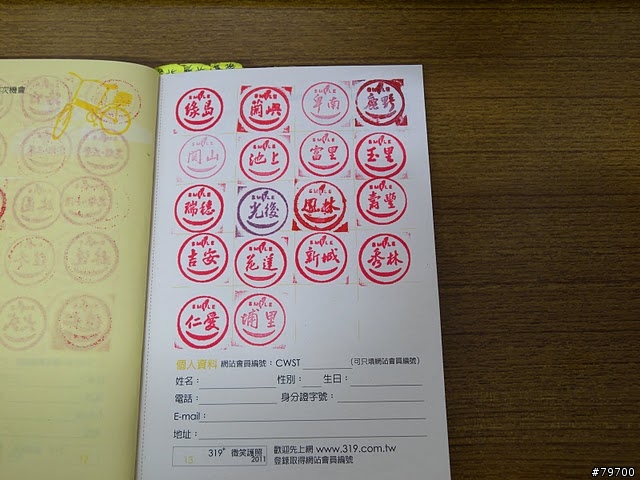 次機會
SMILE 綠島 SMILE 蘭嶼 SMILE 卑南 SMILE 鹿野
SMILE 關山 SMILE 池上 SMILE 富里 SMILE 玉里
SMILE 瑞穗 SMILE 光復 SMILE 鳳林 SMILE 壽豐
SMILE 吉安 SMILE 花蓮 SMILE 新城 SMILE 秀林
SMILE 仁愛 SMILE 埔里
個人資料 網站會員編號：CWST (可只填網站會員編號)
姓名： 性別： 生日：
電話： 身分證字號：
E-mail：
地址：
13 319° 微笑護照 2011
歡迎先上網 www.319.com.tw
登錄取得網站會員編號
12
#79700